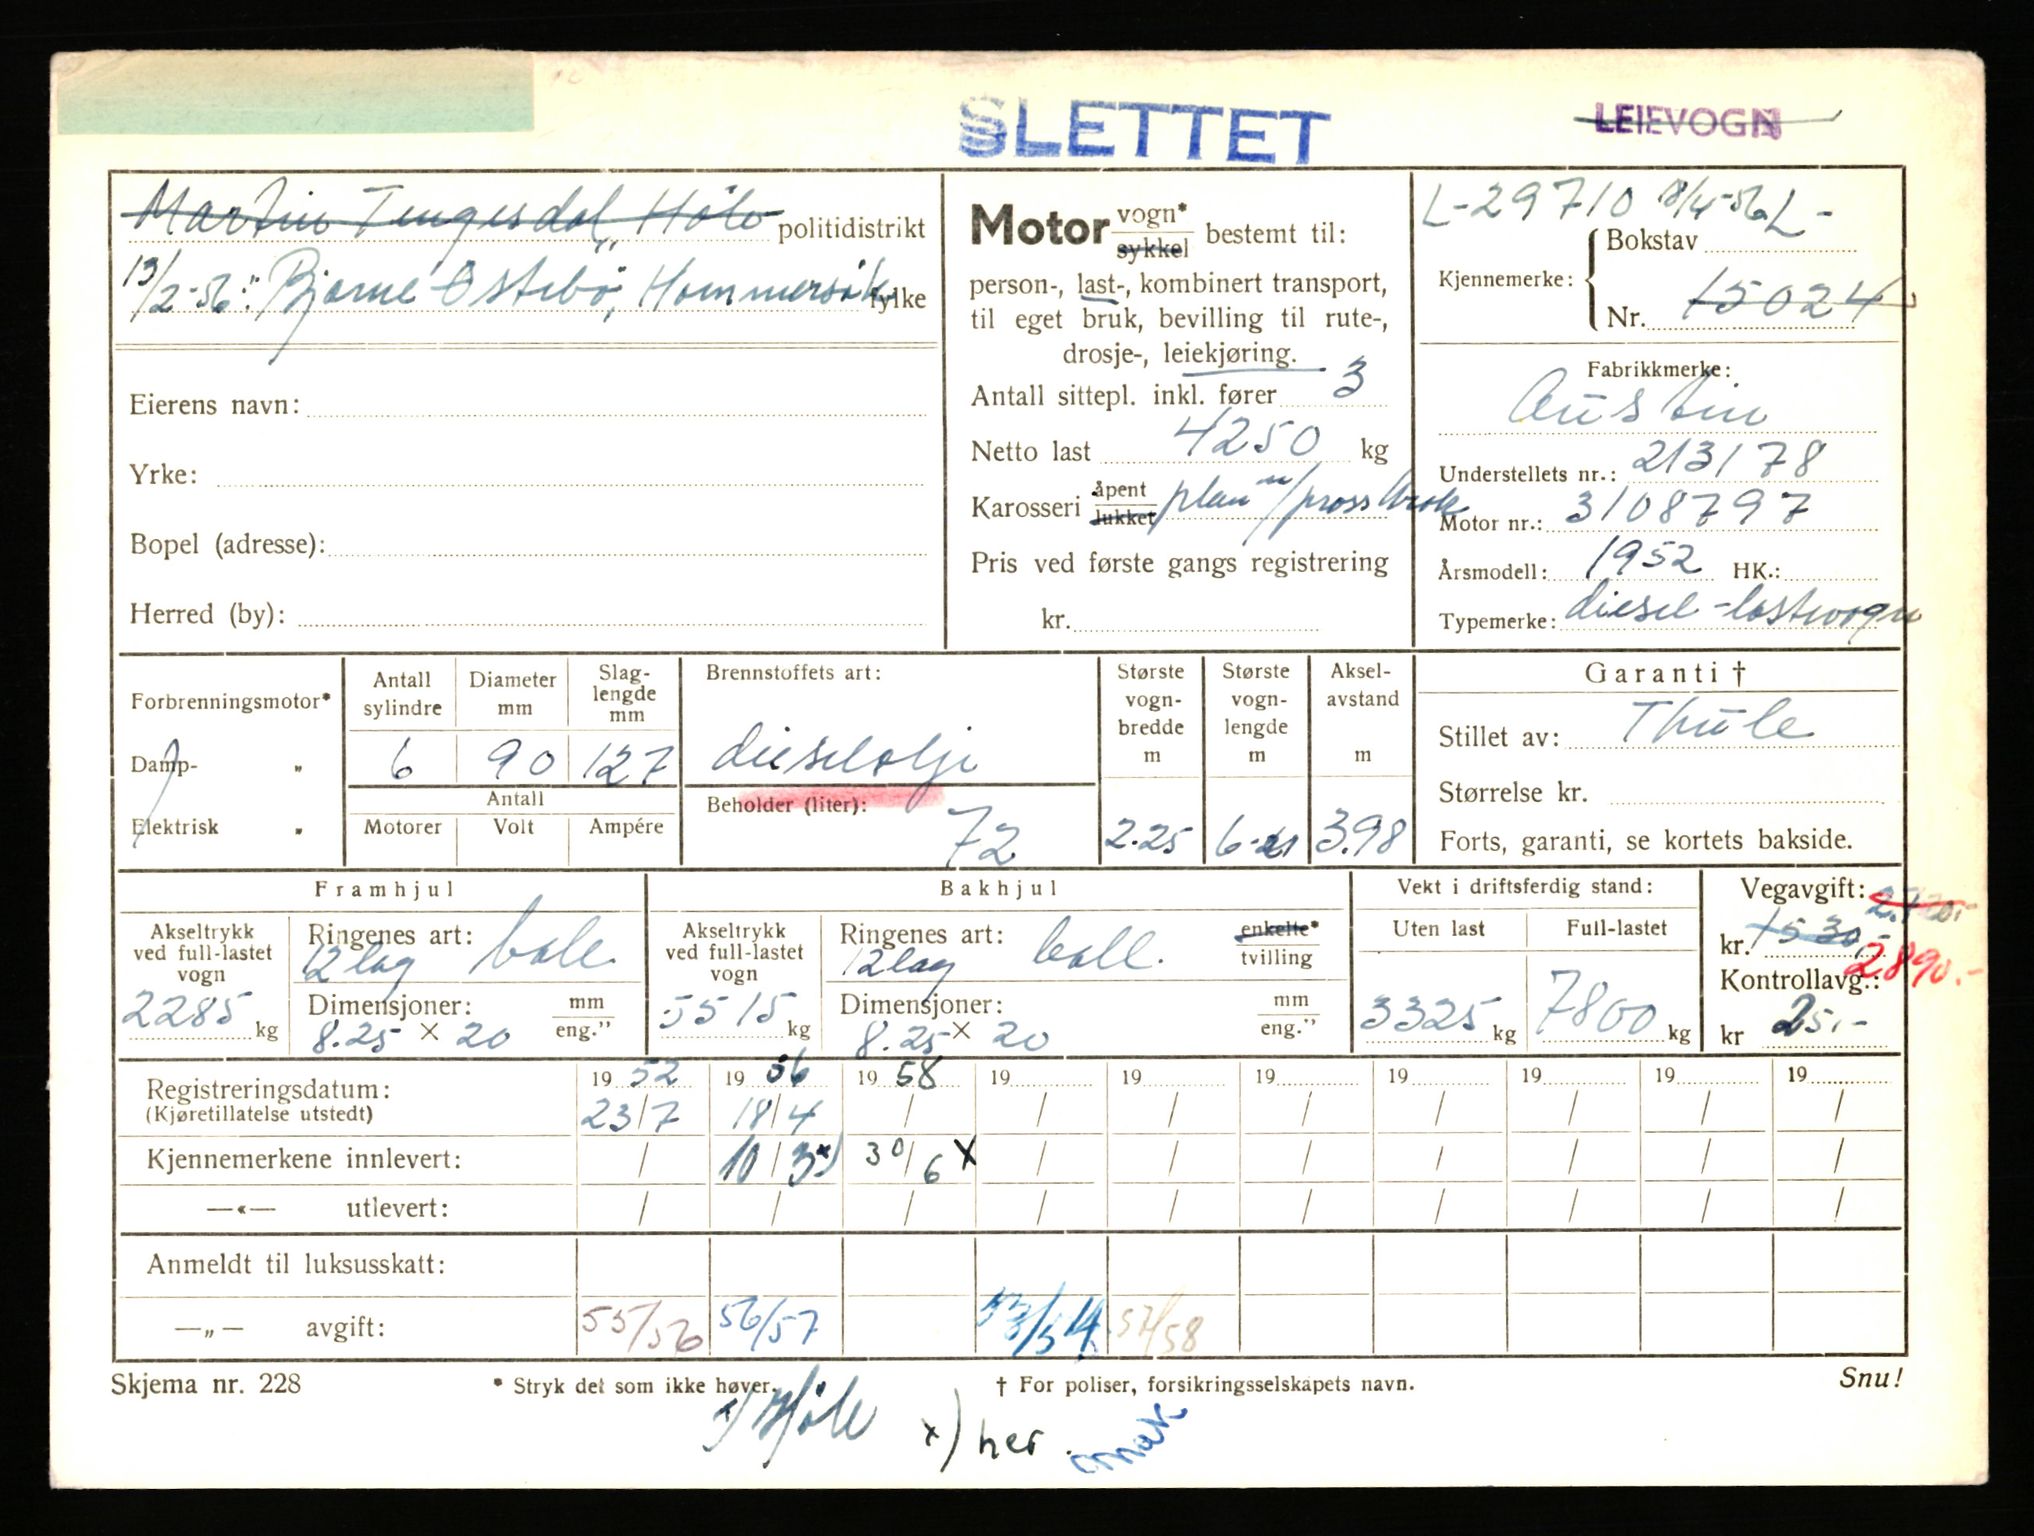 SLETTET
LEIEVOGN
Martin Tengesdal, Høle politidistrikt
13/2-56: Bjarne Østebø, Hommersåk fylke
Eierens navn:
Yrke:
Bopel (adresse):
Herred (by):
Motor vogn* sykkel bestemt til:
person-, last-, kombinert transport,
til eget bruk, bevilling til rute-,
drosje-, leiekjøring.
Antall sittepl. inkl. fører 3
Netto last 4250 kg
Karosseri åpent lukket plan m/
Pris ved første gangs registrering
kr.
L-29710 18/4-56 L-
Kjennemerke: Bokstav
Nr. 15024
Fabrikkmerke:
Austin
Understellets nr.: 213178
Motor nr.: 3108797
Årsmodell: 1952 HK.:
Typemerke: diesel-lastevogn
Forbrenningsmotor*
Damp- „
Elektrisk „
Antall sylindre
6
Diameter mm
90
Slaglengde mm
127
Antall
Motorer Volt Ampére
Brennstoffets art:
dieselolje
Beholder (liter):
72
Største vognbredde m
2.25
Største vognlengde m
6-21
Akselavstand m
3.98
Garanti †
Stillet av: Thule
Størrelse kr.
Forts, garanti, se kortets bakside.
Framhjul
Akseltrykk ved full-lastet vogn
2285 kg
Ringenes art: 12 lag ball.
Dimensjoner: mm eng.”
8.25 × 20
Bakhjul
Akseltrykk ved full-lastet vogn
5515 kg
Ringenes art: enkelte* tvilling
12 lag ball.
Dimensjoner: mm eng.”
8.25 × 20
Vekt i driftsferdig stand:
Uten last Full-lastet
3325 kg 7800 kg
Vegavgift:
kr. 1530,-
2890.-
Kontrollavg.:
kr 25,-
Registreringsdatum: 19 52 19 56 19 58 19 19 19 19 19 19 19
(Kjøretillatelse utstedt) 23/7 18/4 / / / / / / / /
Kjennemerkene innlevert: / 10/3 x) 30/6 x / / / / / / /
—«— utlevert: / / / / / / / / / /
Anmeldt til luksusskatt:
—„— avgift: 55/56 56/57 53/54 57/58
Skjema nr. 228
* Stryk det som ikke høver.
† For poliser, forsikringsselskapets navn.
Snu!
x) Høle x) her.